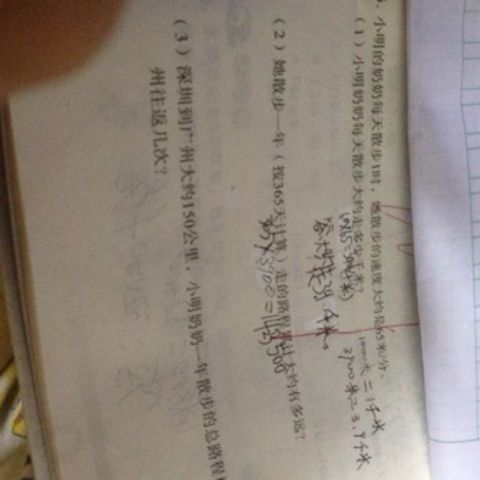 小明的奶奶每天散步1时，她散步的速度大约是65米/分。
(1) 小明奶奶每天散步大约走多少千米?
1000米=1千米
3900米=3.9千米
答:大约走3.9千米。
(2) 她散步一年(按365天计算)走的路程
大约有多远?
365×3900=1423500
(3) 深圳到广州大约150公里，小明奶奶一年散步的总路程
州往返几次?